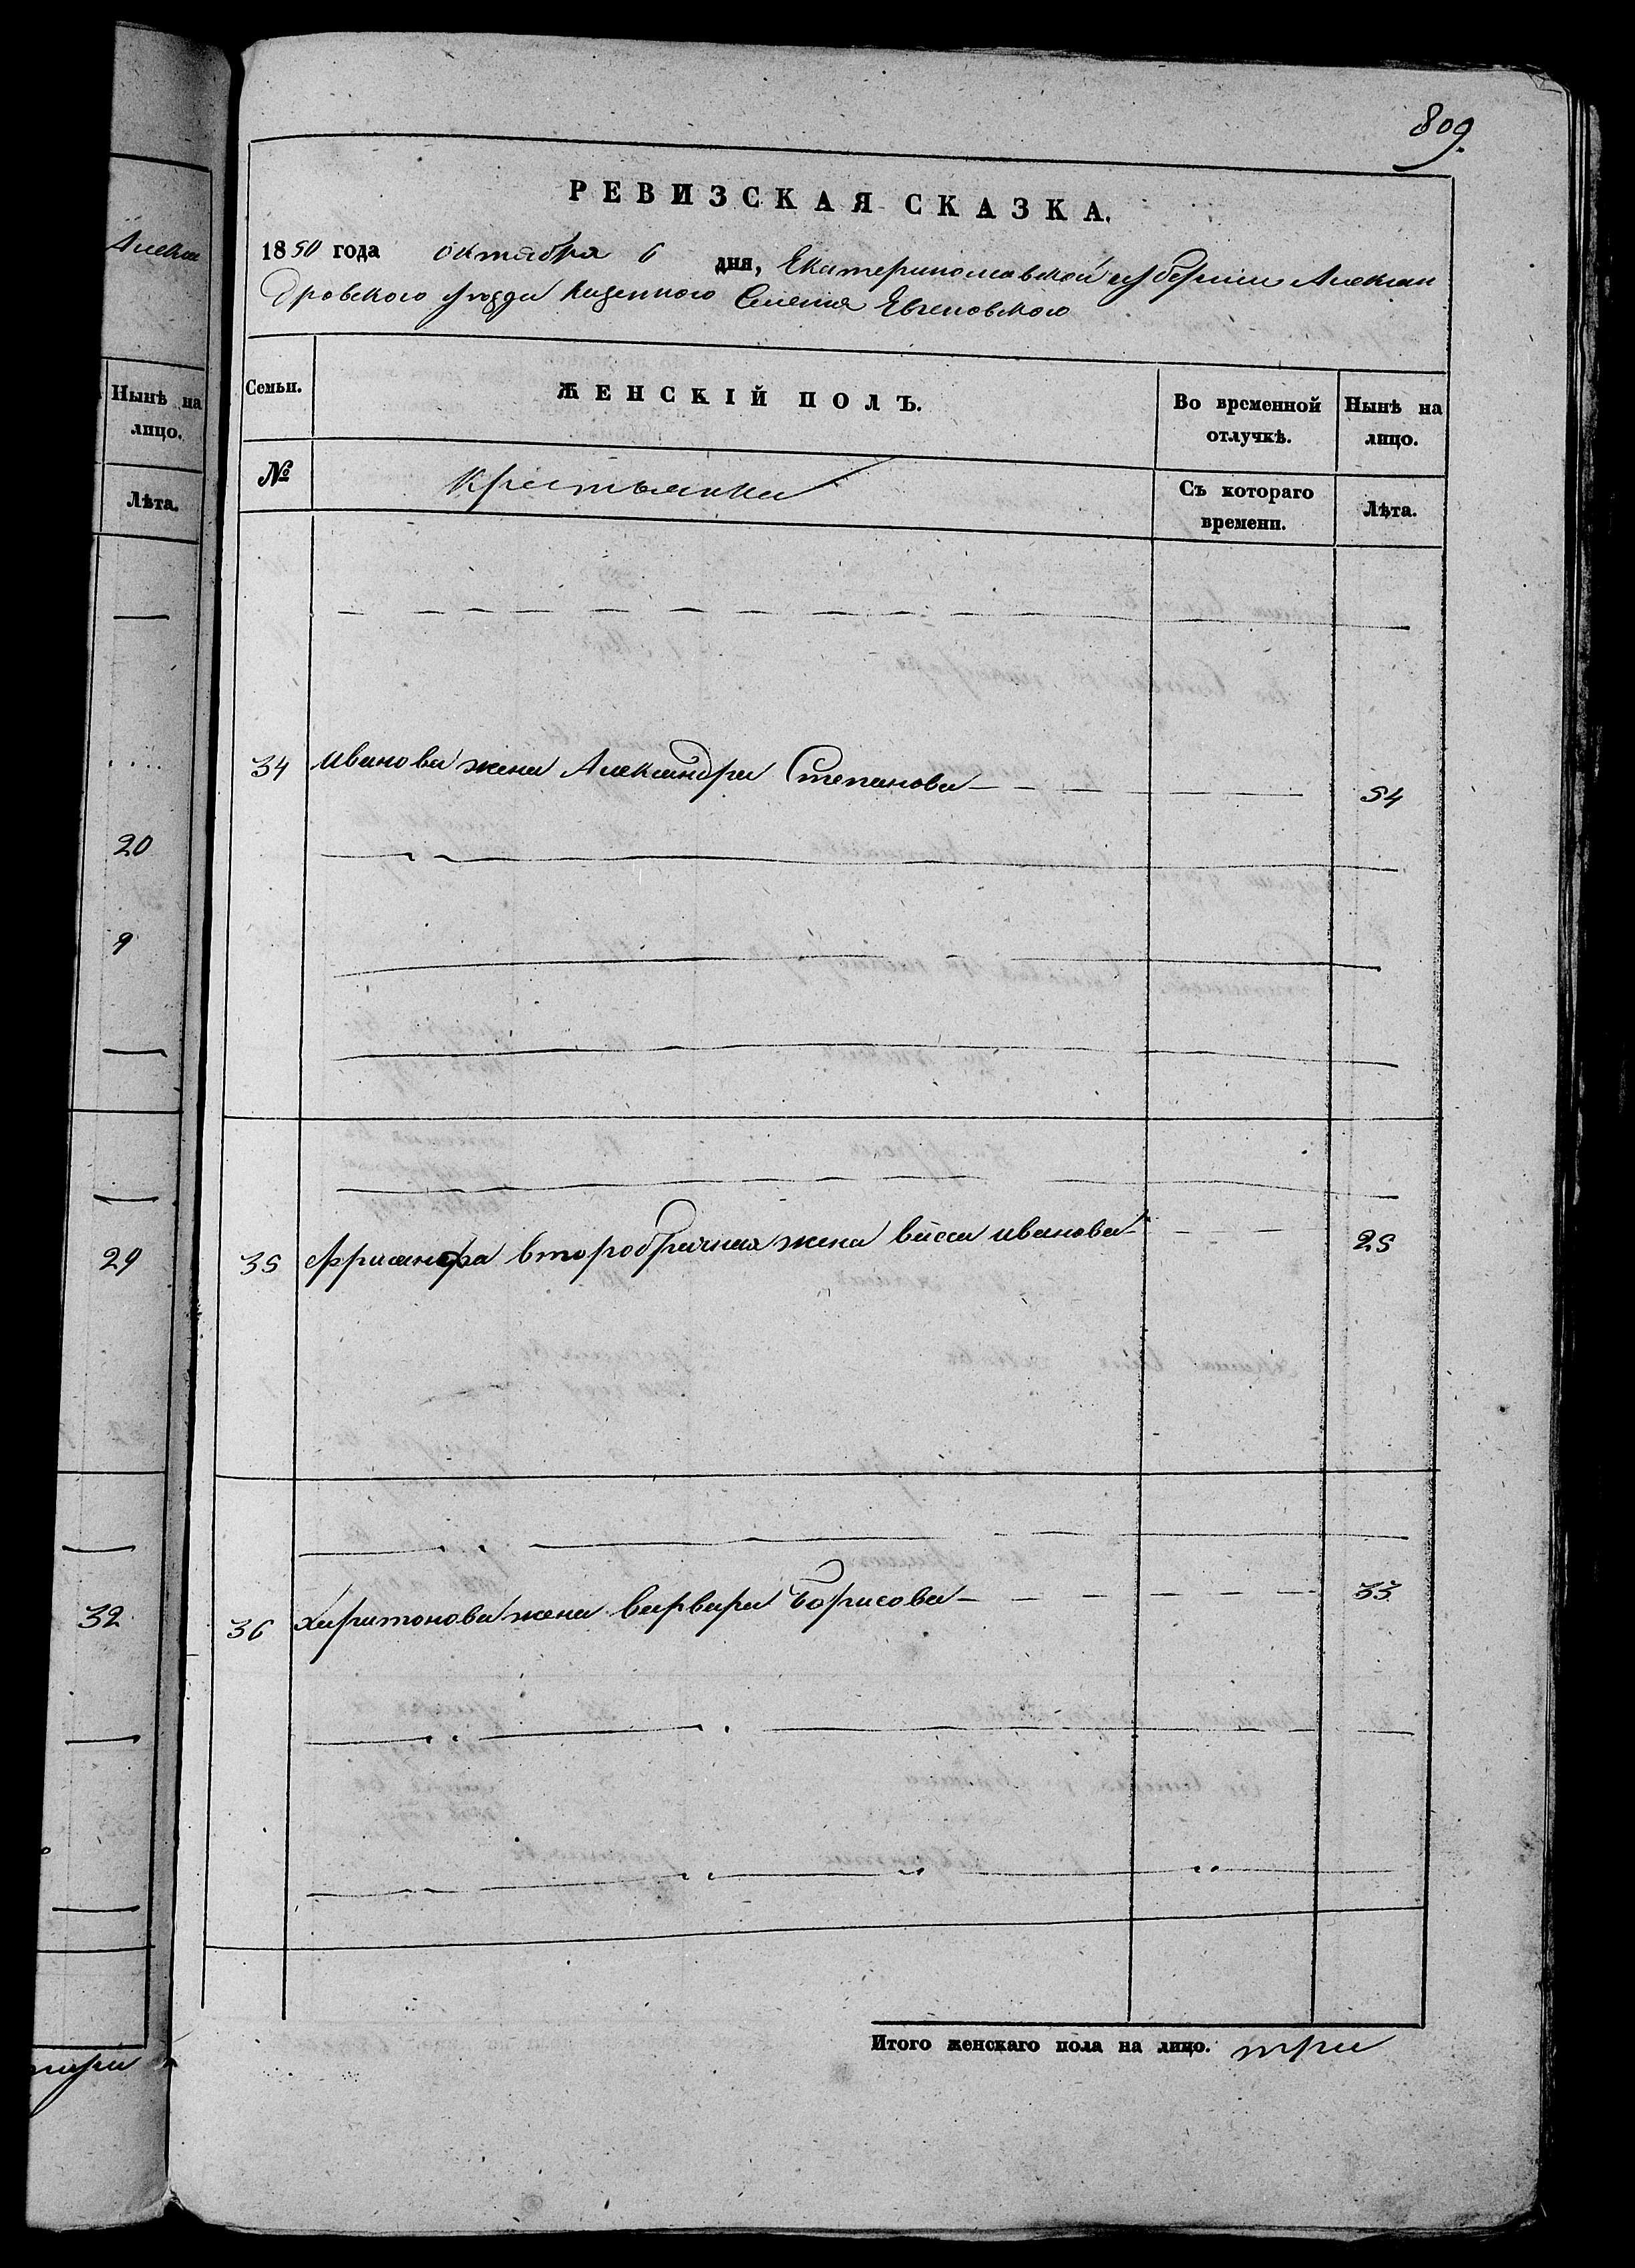 Алекса
Нынѣ на
лицо.
Лѣта.
20
9
29
32
809.
РЕВИЗСКАЯ СКАЗКА.
1850 года октября 6 дня, Екатеринославской губерніи Алексан
дровского уѣзда Казенного Селенія
Семьи.
ЖЕНСКІЙ ПОЛЪ.
Во временной
отлучкѣ.
Нынѣ на
лицо.
№
крестьянки
Съ котораго
времени.
Лѣта.
34 Иванова жена Александра Степанова 54
35 второбрачная жена васса иванова 25
36 Харитонова жена варвара Борисова 33
Итого женскаго пола на лицо. три